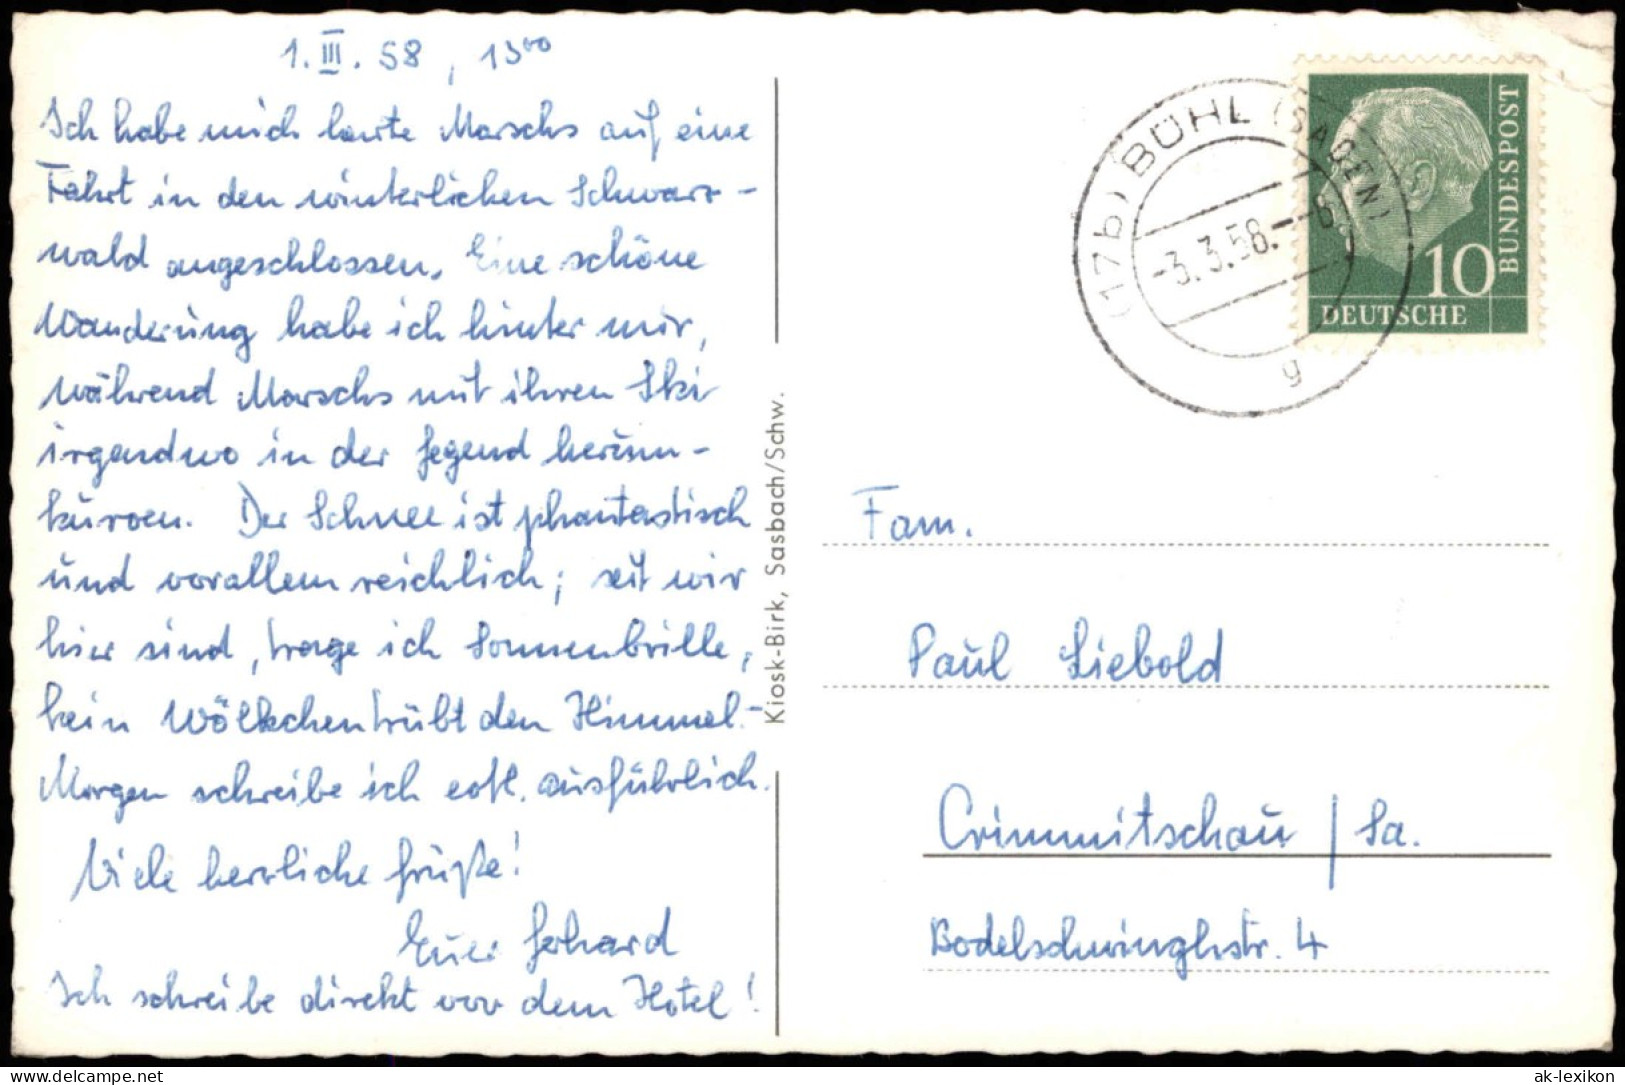 1. III. 58, 13⁰⁰
Ich habe mich heute Marschs auf eine
Fahrt in den winterlichen Schwarz-
wald angeschlossen. Eine schöne
Wanderung habe ich hinter mir,
während Marschs mit ihren Ski
irgendwo in der Gegend herum-
kurven. Der Schnee ist phantastisch
und vorallem reichlich; seit wir
hier sind, trage ich Sonnenbrille,
kein Wölkchen trübt den Himmel.-
Morgen schreibe ich ausführlich.
Viele herzliche Grüße!
Euer Gerhard
Ich schreibe direkt vor dem Hotel!
Kiosk-Birk, Sasbach/Schw.
(17b) BÜHL (BADEN)
-3.3.58.--
g
10
DEUTSCHE
BUNDESPOST
Fam.
Paul Liebold
Crimmitschau / Sa.
Bodelschwinghstr. 4
THE WORLDWIDE MARKETPLACE FOR COLLECTORS
ak-lexikon